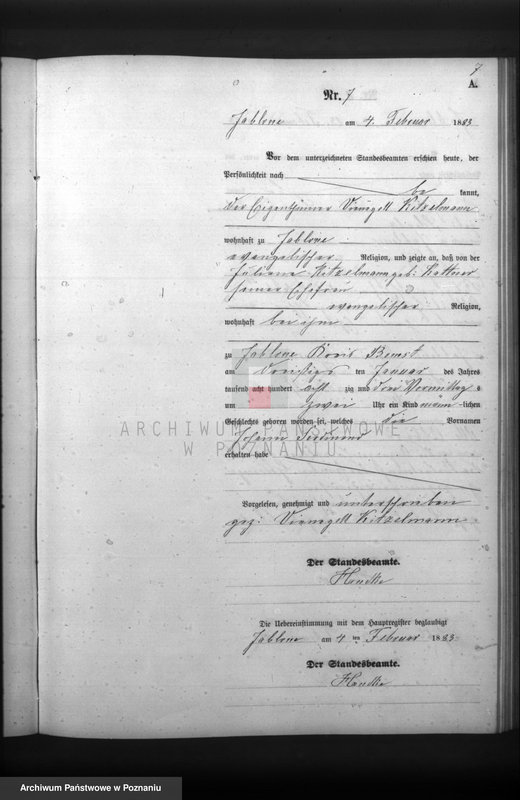 7
A.
Nr. 7
Jablone am 4. Februar 1883
Vor dem unterzeichneten Standesbeamten erschien heute, der
Persönlichkeit nach
be kannt,
der Eigenthümer Kitzelmann
wohnhaft zu Jablone
evangelischer Religion, und zeigte an, daß von der
Juliane Kitzelmann geb. Kattner
seiner Ehefrau
evangelischer Religion,
wohnhaft bei ihm
zu Jablone Kreis Bomst
am dreißigs ten Januar des Jahres
tausend acht hundert acht zig und drei Vormittag s
um zwei Uhr ein Kind männ lichen
Geschlechts geboren worden sei, welches die Vornamen
Johann Ferdinand
erhalten habe
ARCHIWUM PAŃSTWOWE
W POZNANIU
Vorgelesen, genehmigt und unterschrieben
gez: Kitzelmann
Der Standesbeamte.
Die Uebereinstimmung mit dem Hauptregister beglaubigt
Jablone am 4 ten Februar 1883
Der Standesbeamte.
Archiwum Państwowe w Poznaniu